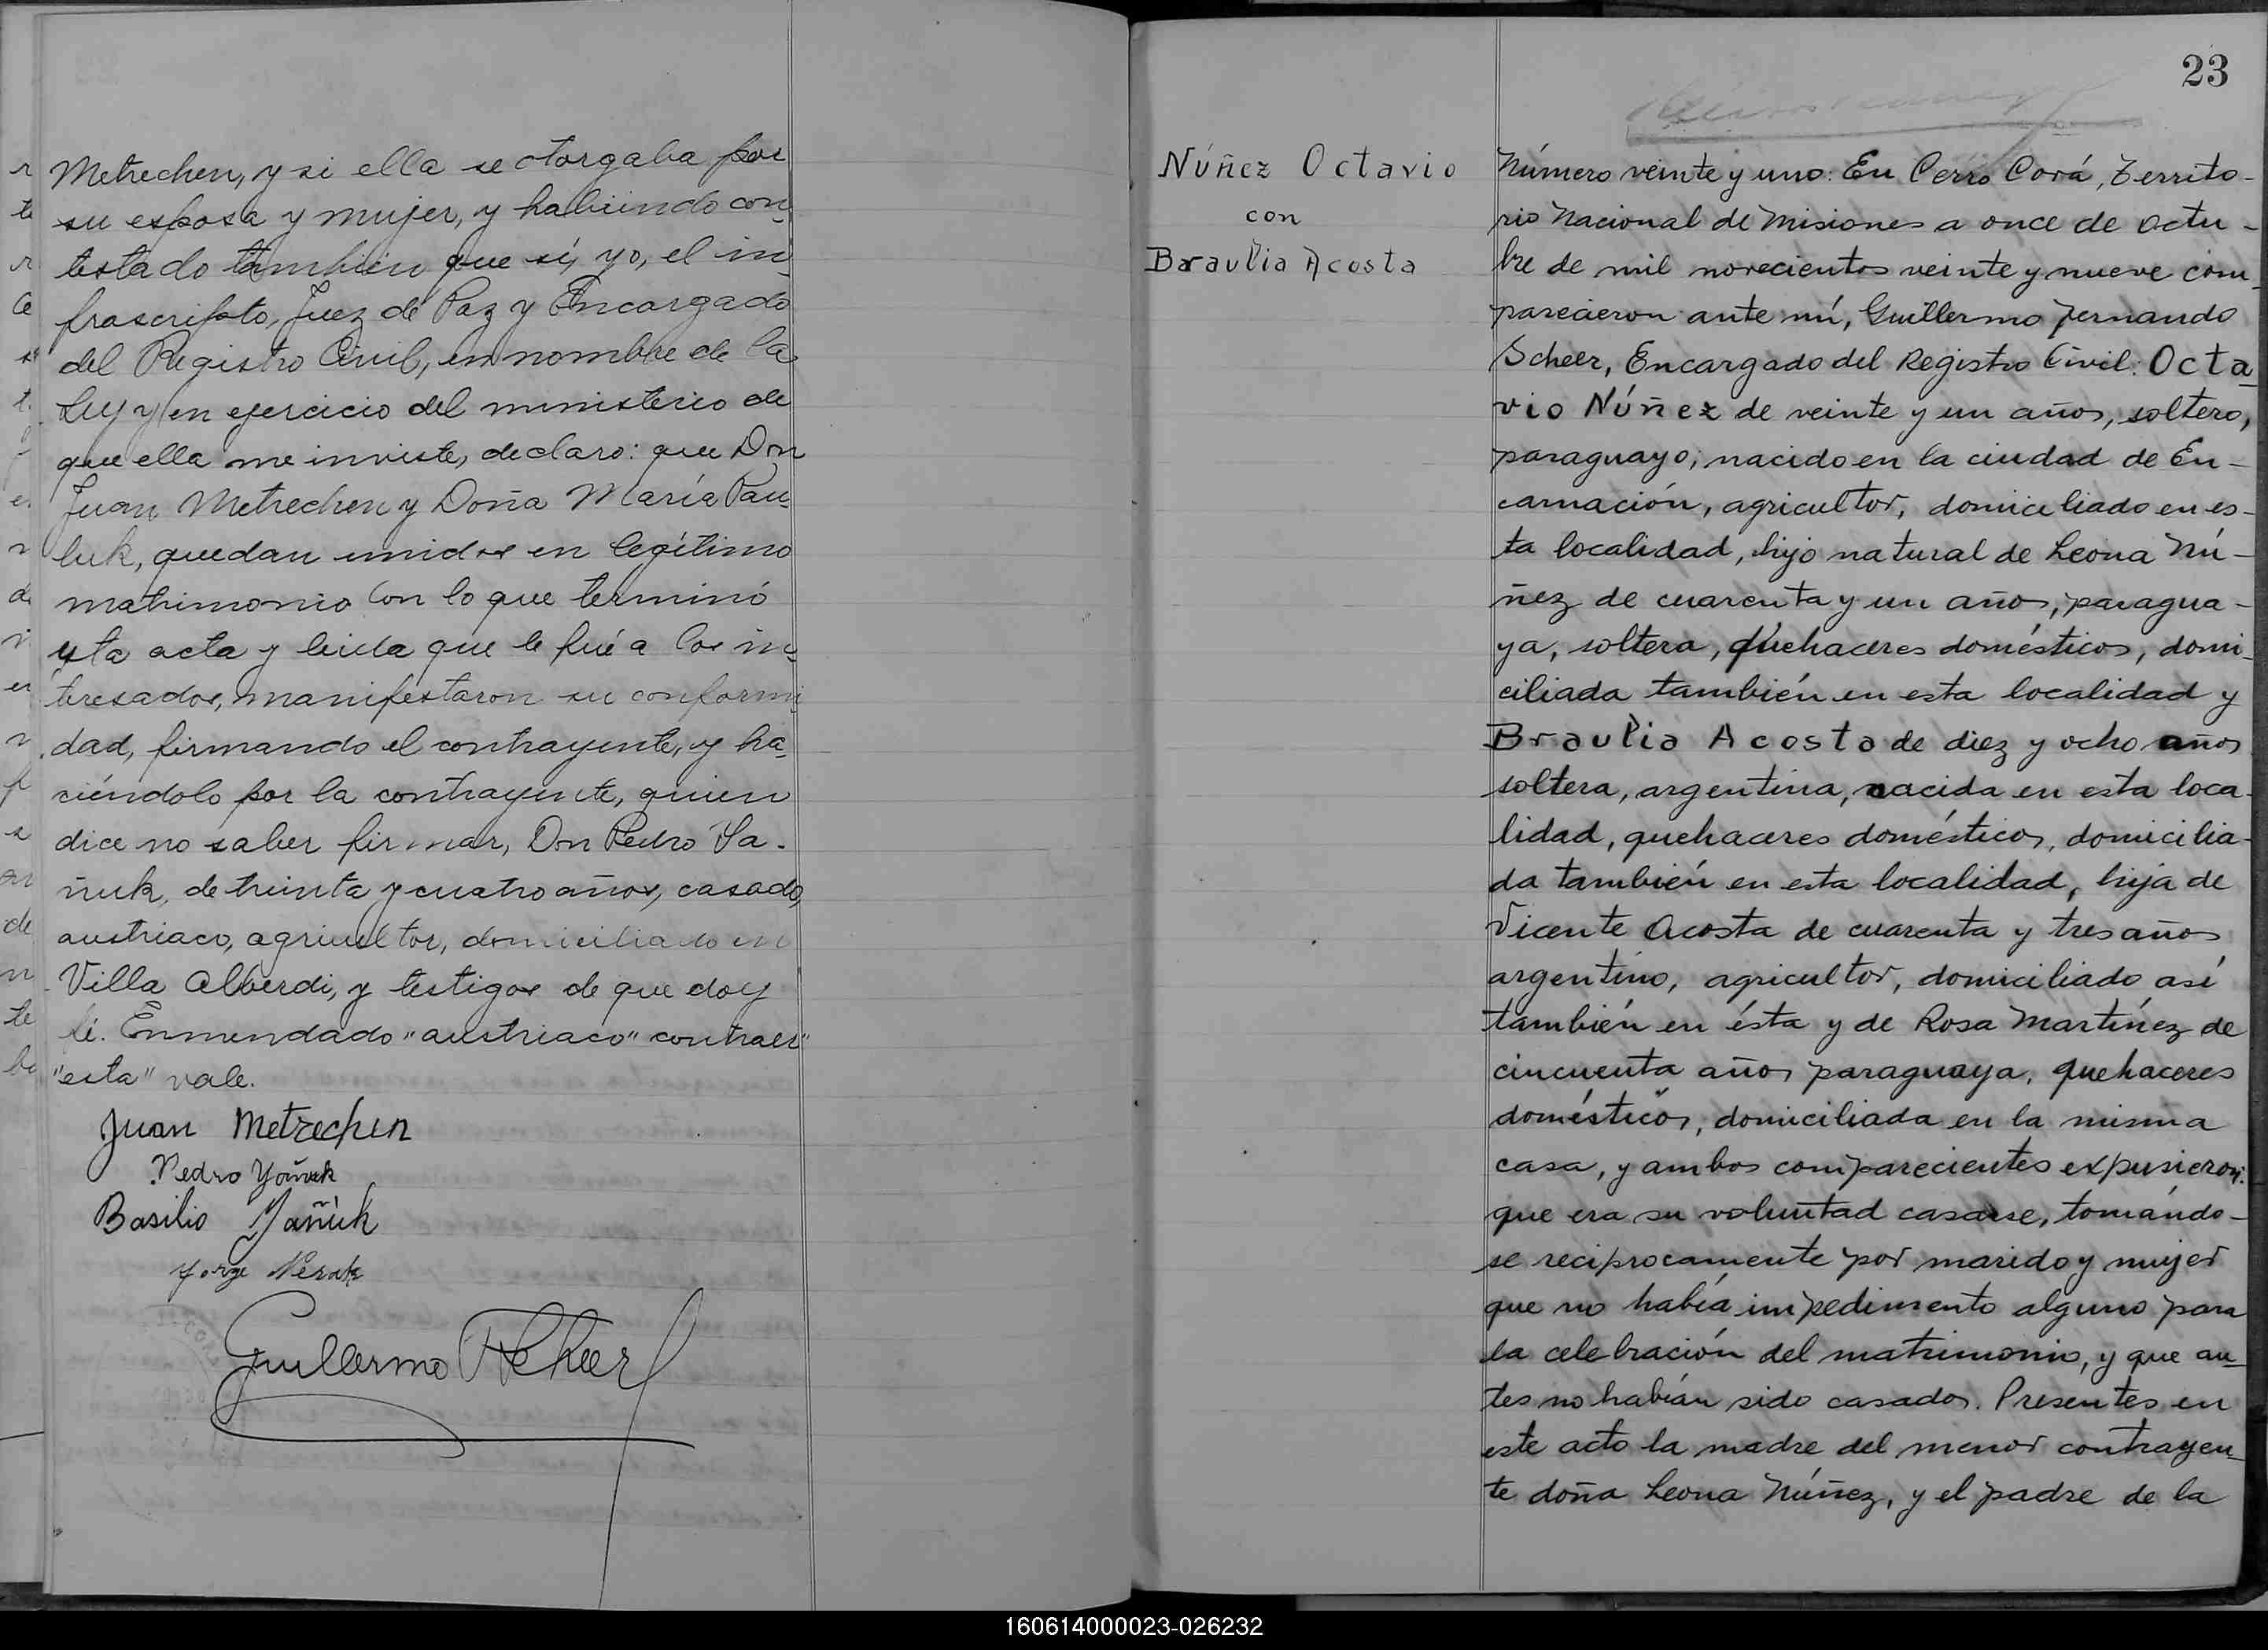 Metrechen, y si ella se otorgaba por
su esposa y mujer, y habiendo con
testado también que sí, yo, el in
frascripto, Juez de Paz y Encargado
del Registro Civil, en nombre de la
Ley y en ejercicio del ministerio de
que ella me inviste, declaro: que Don
Juan Metrechen y Doña María Pau
luk, quedan unidos en legítimo
matrimonio Con lo que terminó
esta acta y leida que le fué a los in
teresados, manifestaron su conformi
dad, firmando el contrayente, y ha
ciéndolo por la contrayente, quien
dice no saber firmar, Don Pedro Ya-
ñuk, de treinta y cuatro años, casado,
austriaco, agricultor, domiciliado en
Villa Alberdi, y testigos de que doy
fé. Enmendado "austriaco" contraer"
"esta" vale.
Juan Metrechen
Pedro Yañuk
Basilio Yañuk
Jorge
Guillermo F Scheer
23
Núñez Octavio
con
Braulia Acosta
Número veinte y uno: En Cerro Corá, Territo-
rio Nacional de Misiones a once de Octu-
bre de mil novecientos veinte y nueve com
parecieron ante mí, Guillermo Fernando
Scheer, Encargado del Registro Civil: Octa
vio Núñez de veinte y un años, soltero,
paraguayo, nacido en la ciudad de En-
carnación, agricultor, domiciliado en es-
ta localidad, hijo natural de Leona Nú-
ñez de cuarenta y un años, paragua-
ya, soltera, quehaceres domésticos, domi-
ciliada también en esta localidad y
Braulia Acosta de diez y ocho años
soltera, argentina, nacida en esta loca-
lidad, quehaceres domésticos, domicilia-
da también en esta localidad, hija de
Vicente Acosta de cuarenta y tres años
argentino, agricultor, domiciliado así
también en ésta y de Rosa Martínez de
cincuenta años paraguaya, quehaceres
domésticos, domiciliada en la misma
casa, y ambos comparecientes expusieron:
que era su voluntad casarse, tomándo-
se recíprocamente por marido y mujer
que no había impedimento alguno para
la celebración del matrimonio, y que an
tes no habían sido casados. Presentes en
este acto la madre del menor contrayen
te doña Leona Núñez, y el padre de la
160614000023-026232